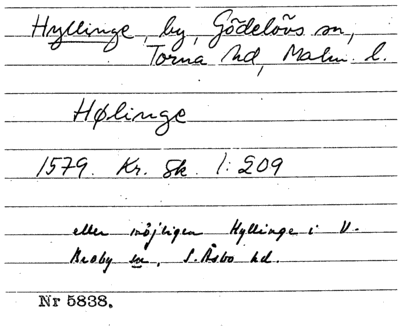 Hyllinge, by, Gödelövs sn,
Torna hd, Malm. l.
Hølinge
1579. Kr. Sk. 1:209
eller möjligen Hyllinge i V.
Broby sn, S. Åsbo hd.
Nr 5838.